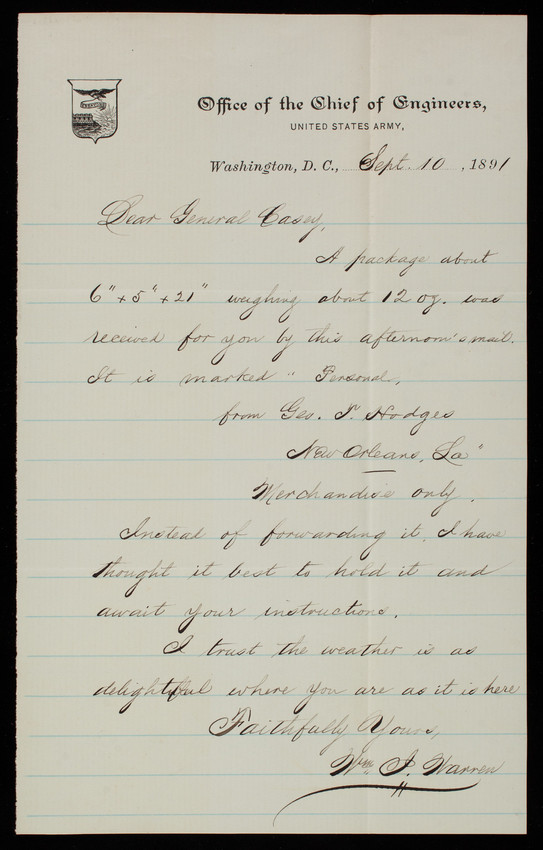 Office of the Chief of Engineers,
UNITED STATES ARMY,
Washington, D. C., Sept. 10, 1891
Dear General Casey,
A package about
6" + 5" + 21" weighing about 12 oz. was
received for you by this afternoon's mail.
It is marked " Personal,
from Geo. T. Hodges
New Orleans, La"
Merchandise only.
Instead of forwarding it, I have
thought it best to hold it and
await your instructions.
I trust the weather is as
delightful where you are as it is here
Faithfully Yours,
Wm J. Warren